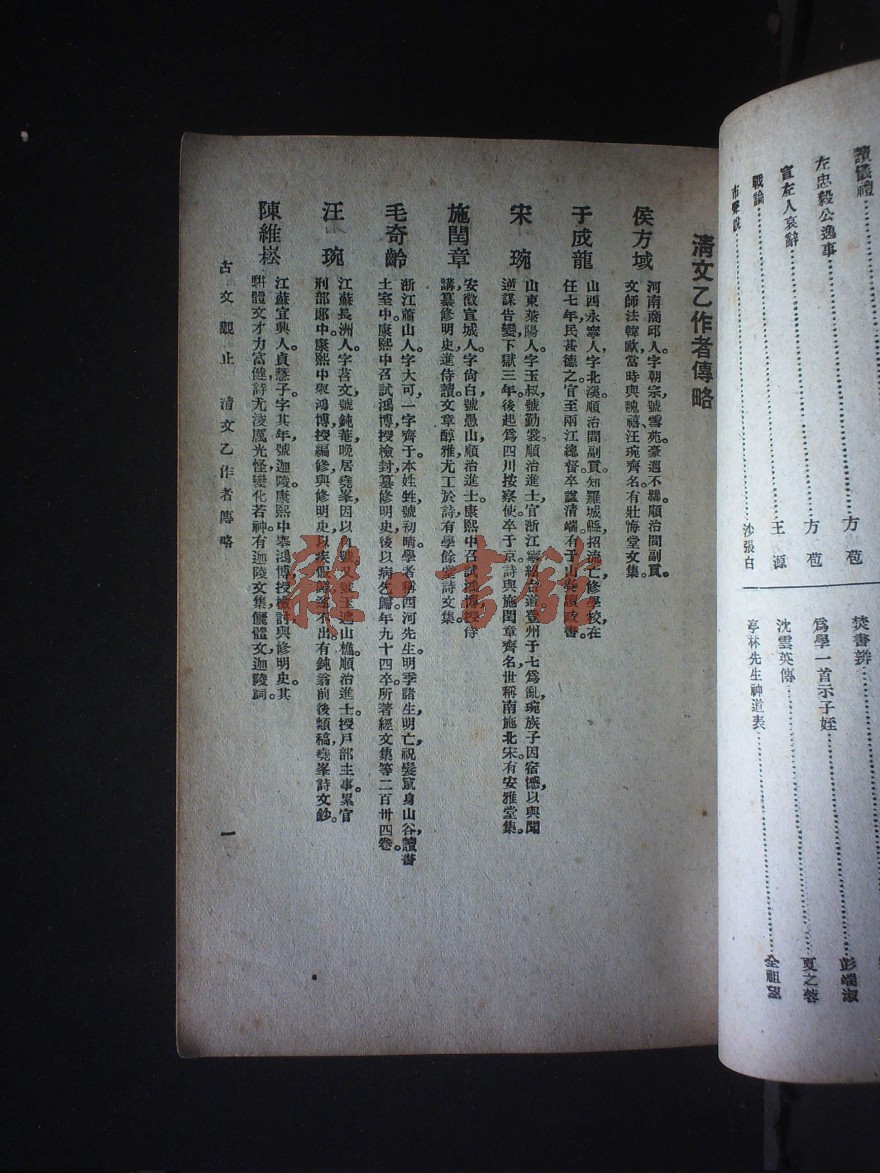 清文乙作者傳略
侯方域
河南商邱人字朝宗號雪苑豪邁不羈順治間副貢。
文師法韓歐當時與魏禧汪琬齊名有壯悔堂文集。
于成龍
山西永寧人字北溪順治間副貢知羅城縣招流亡修學校在
任七年民甚德之官至兩江總督卒諡清端有于山奏牘政書。
宋琬
山東萊陽人字玉叔號勤裳順治進士官浙江寧紹台道登州于七爲亂琬族子因宿憾以與聞
逆謀告變下獄三年後起爲四川按察使卒于京詩與施閏章齊名世稱南施北宋有安雅堂集。
施閏章
安徽宣城人字尙白號愚山順治進士康熙中召試鴻博授侍
講纂修明史進侍讀文章醇雅尤工於詩有學餘堂詩文集。
毛奇齡
浙江蕭山人字大可一字齊于本姓甡號初晴學者稱西河先生明季諸生明亡祝髮竄身山谷讀書
土室中康熙中召試鴻博授檢討纂修明史後以病乞歸年九十四卒所著經文集等二百卅四卷。
汪琬
江蘇長洲人字苕文號鈍菴晚居堯峯因以爲號又號玉遮山樵順治進士授戶部主事累官
刑部郎中康熙中舉鴻博授編修與修明史以疾假歸遂不出有鈍翁前後類稿堯峯詩文鈔。
陳維崧
江蘇宜興人貞慧子字其年號迦陵康熙中舉鴻博授檢討與修明史其
駢體文才力富健詩尤淩厲光怪變化若神有迦陵文集儷體文迦陵詞。
古文觀止 清文乙作者傳略 一
讀儀禮 方苞
左忠毅公逸事 方苞
宣左人哀辭
戰論 王源
市聲說 沙張白
焚書辨
爲學一首示子姪 彭端淑
沈雲英傳 夏之蓉
亭林先生神道表 全祖望
雜·書館